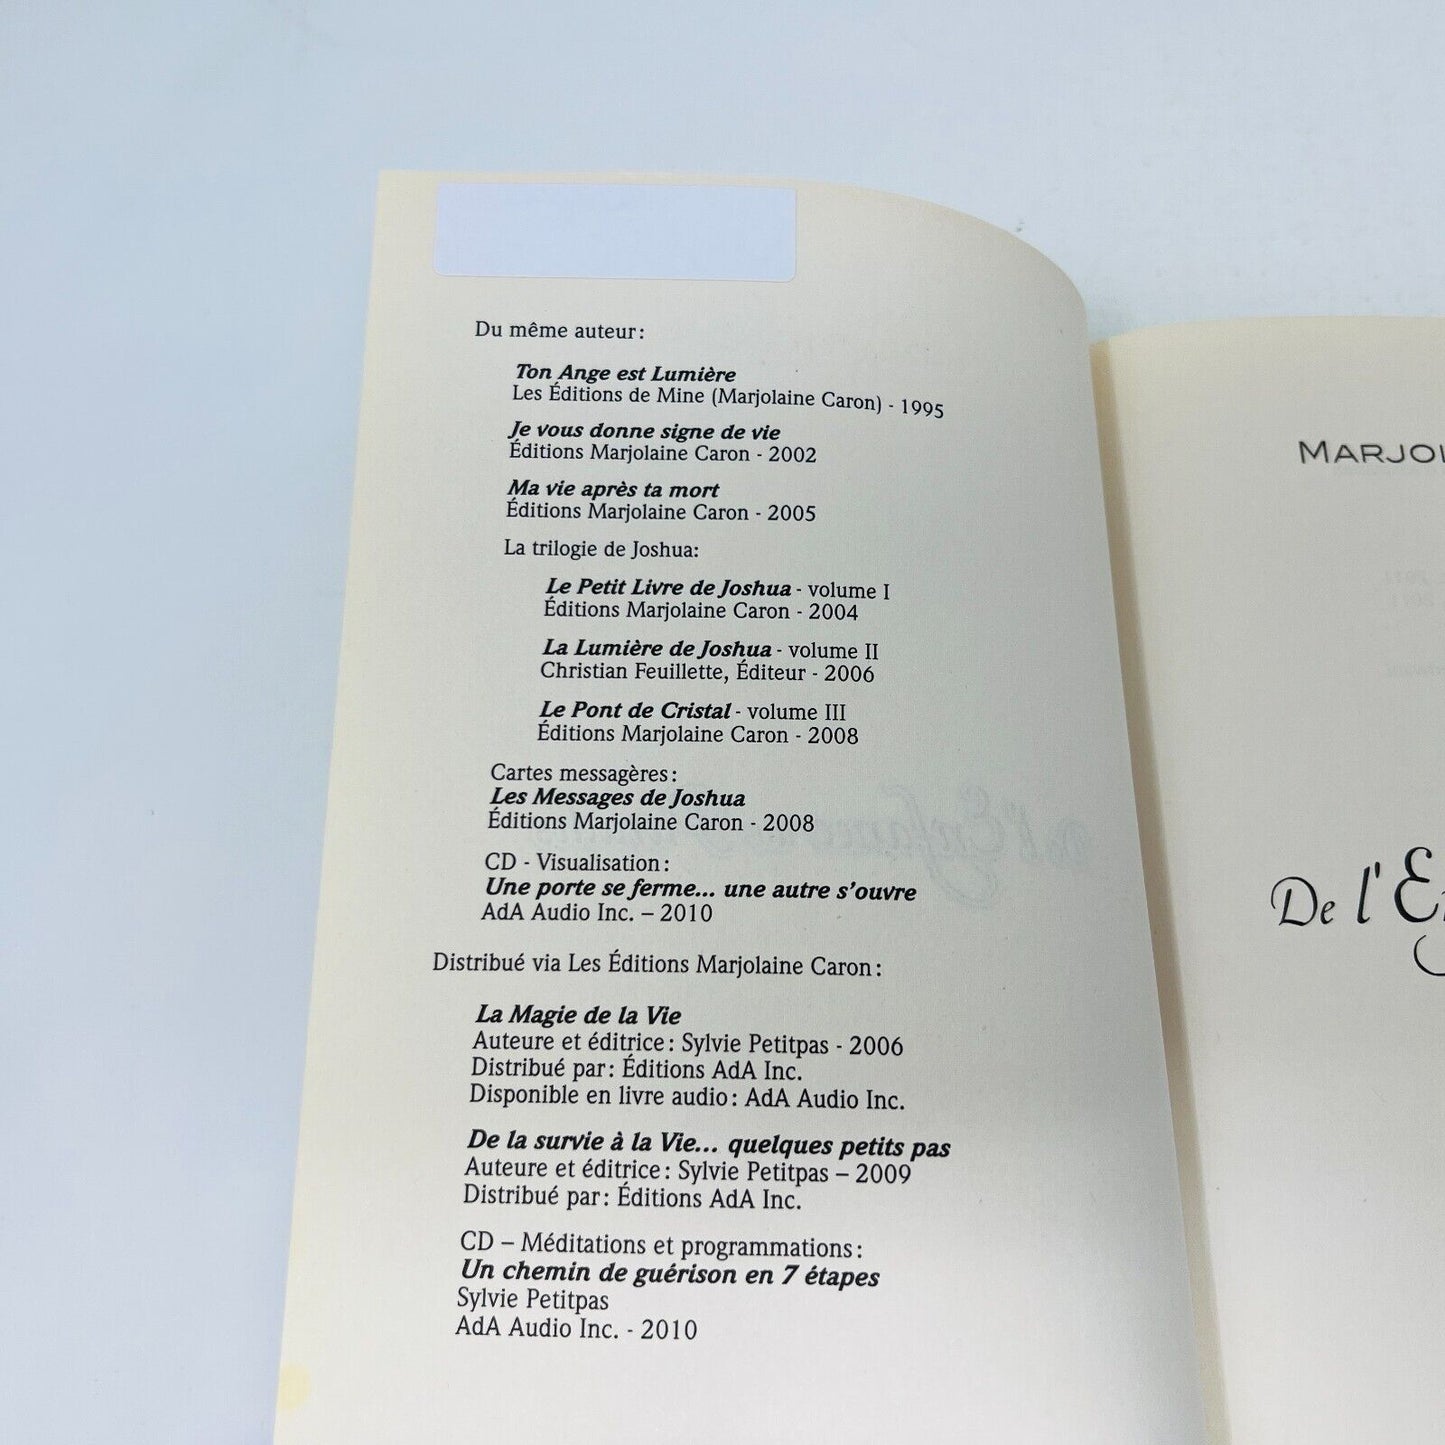 Du même auteur :
Ton Ange est Lumière
Les Éditions de Mine (Marjolaine Caron) - 1995
Je vous donne signe de vie
Éditions Marjolaine Caron - 2002
Ma vie après ta mort
Éditions Marjolaine Caron - 2005
La trilogie de Joshua:
Le Petit Livre de Joshua - volume I
Éditions Marjolaine Caron - 2004
La Lumière de Joshua - volume II
Christian Feuillette, Éditeur - 2006
Le Pont de Cristal - volume III
Éditions Marjolaine Caron - 2008
Cartes messagères :
Les Messages de Joshua
Éditions Marjolaine Caron - 2008
CD - Visualisation :
Une porte se ferme... une autre s'ouvre
AdA Audio Inc. – 2010
Distribué via Les Éditions Marjolaine Caron :
La Magie de la Vie
Auteure et éditrice : Sylvie Petitpas - 2006
Distribué par : Éditions AdA Inc.
Disponible en livre audio : AdA Audio Inc.
De la survie à la Vie... quelques petits pas
Auteure et éditrice : Sylvie Petitpas – 2009
Distribué par : Éditions AdA Inc.
CD – Méditations et programmations :
Un chemin de guérison en 7 étapes
Sylvie Petitpas
AdA Audio Inc. - 2010
MARJOL
De l'E